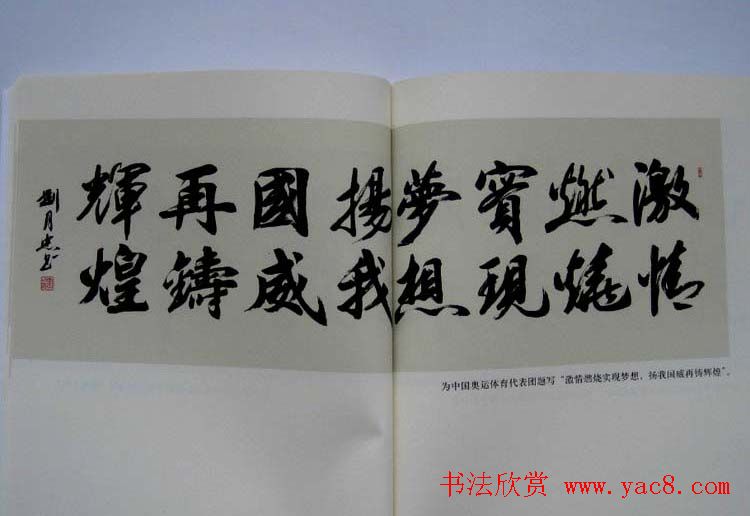 激情
燃燒
實現
夢想
揚我
國威
再鑄
輝煌
劉月
为中国奥运体育代表团题写“激情燃烧实现梦想,扬我国威再铸辉煌”。
书法欣赏 www.yac8.com